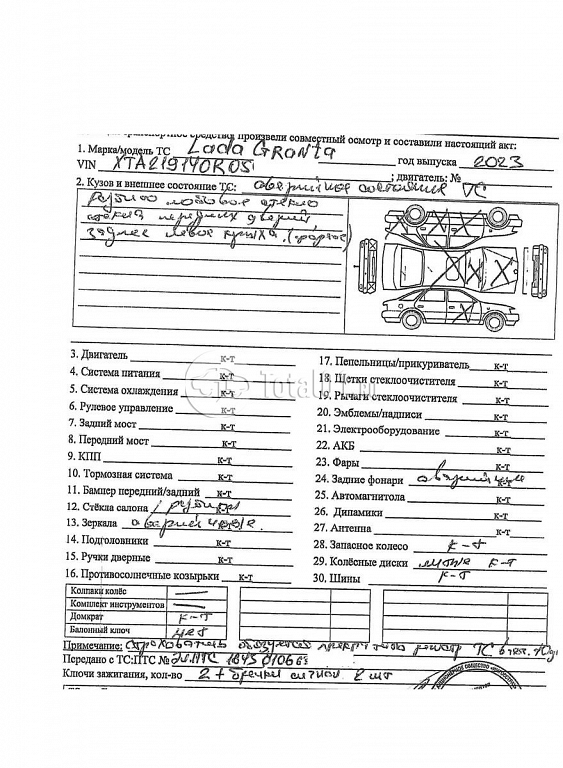 транспортное средство, произвели совместный осмотр и составили настоящий акт:
1. Марка/модель ТС Lada GRanta
VIN XTA219170R05 год выпуска 2023
; двигатель: №
2. Кузов и внешнее состояние ТС: аварийное состояние ТС
лобовое стекло
стекла передних дверей,
заднее левое крыло.
3. Двигатель к-т
4. Система питания к-т
5. Система охлаждения к-т
6. Рулевое управление к-т
7. Задний мост к-т
8. Передний мост к-т
9. КПП к-т
10. Тормозная система к-т
11. Бампер передний/задний к-т
12. Стёкла салона
13. Зеркала аварийное
14. Подголовники к-т
15. Ручки дверные к-т
16. Противосолнечные козырьки к-т
17. Пепельницы/прикуриватель к-т
18. Щетки стеклоочистителя к-т
19. Рычаги стеклоочистителя к-т
20. Эмблемы/надписи к-т
21. Электрооборудование к-т
22. АКБ к-т
23. Фары к-т
24. Задние фонари к-т
25. Автомагнитола к-т
26. Динамики к-т
27. Антенна к-т
28. Запасное колесо к-т
29. Колёсные диски литые к-т
30. Шины к-т
Колпаки колёс —
Комплект инструментов —
Домкрат к-т
Балонный ключ нет
Примечание: Страхователь обязуется ТС
Передано с ТС:ПТС №
Ключи зажигания, кол-во 2 + брелки 2 шт